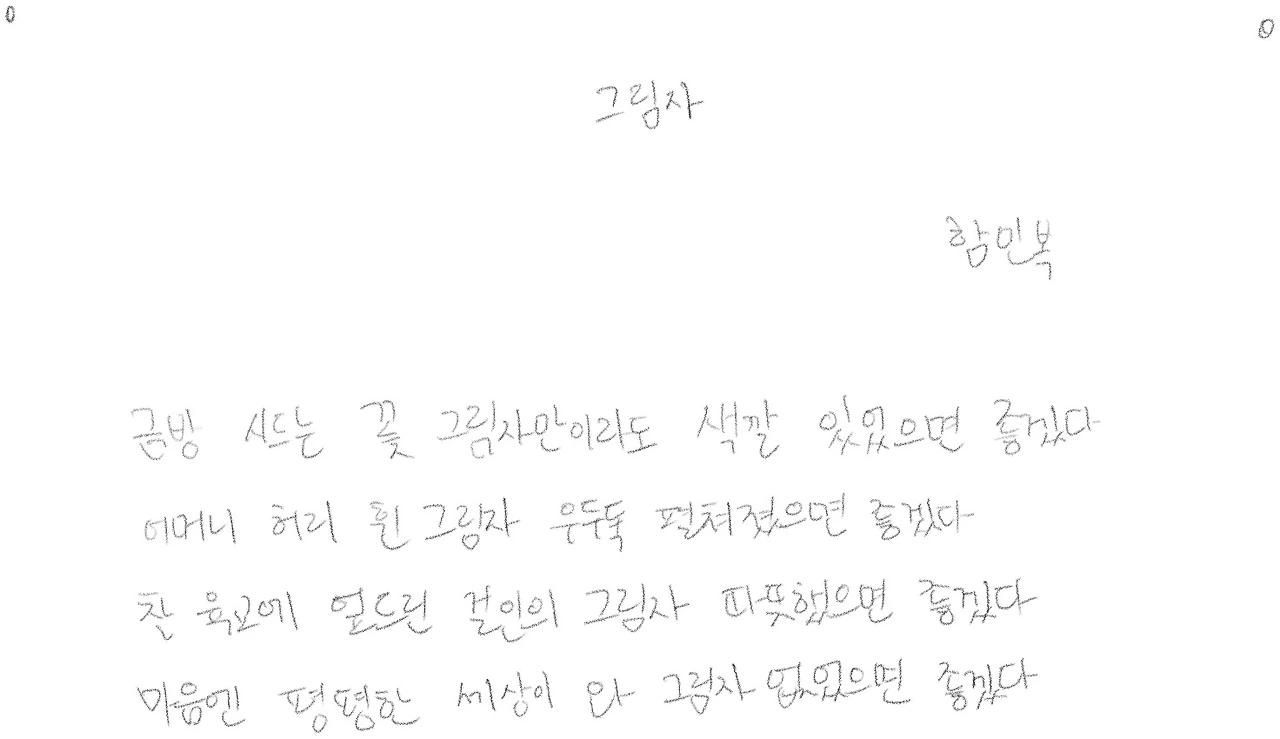 그림자
함민복
금방 시드는 꽃 그림자만이라도 색깔 있었으면 좋겠다
어머니 허리 휜 그림자 우두둑 펼쳐졌으면 좋겠다
찬 육교에 엎드린 걸인의 그림자 따뜻했으면 좋겠다
마음엔 평평한 세상이 와 그림자 없었으면 좋겠다